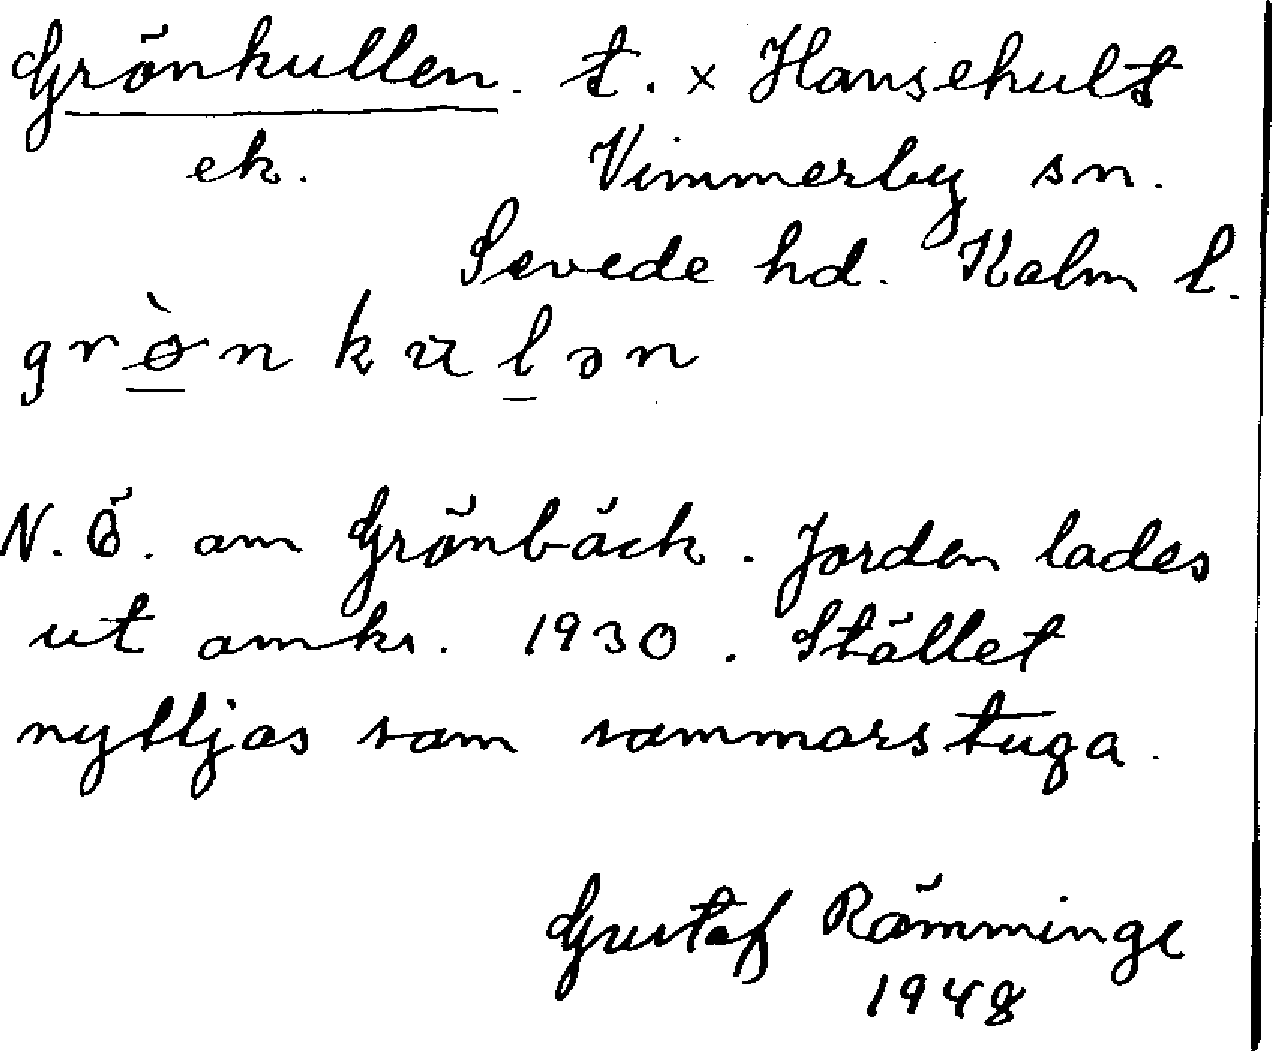 Grönkullen. t. x Hansehult
ek. Vimmerby sn.
Sevede hd. Kalm l.
grø̀n kulən
N. Ö. om Grönbäck. Jorden lades
ut omkr. 1930. Stället
nyttjas som sommarstuga.
Gustaf Rämminge
1948